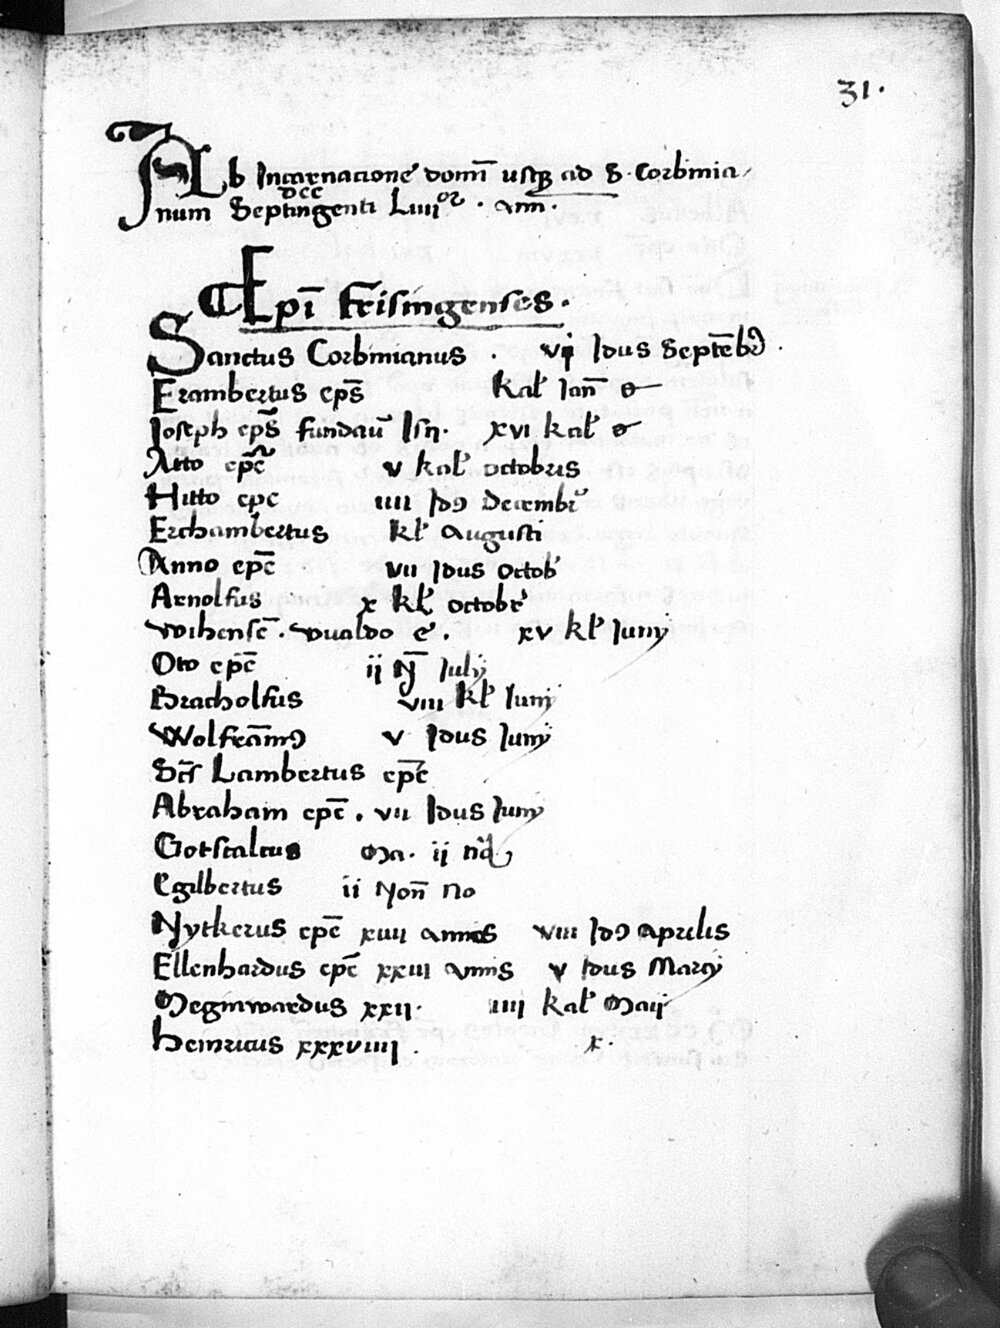 31.
Ab Incarnacione dom̄ usq; ad S. Corbinia
num Septingenti Liiii or . ann.
dcc
Ep̄i Frisingenses.
Sanctus Corbinianus . vi Idus Septēbr .
Erambertus ep̄s kal Ian̄
Joseph ep̄s fundau Isn. xvi kal
Atto ep̄c v kal octobris
Hitto epc iiii Id9 Decembr
Erchambertus kl Augusti
Anno ep̄c vii Idus Octob
Arnolfus x kl octobr
Wihensc̄. Wualdo e. xv kl Junij
Oto ep̄c ij N̄ Julij
Dracholfus viii kl Junij
Wolfrām9 v Idus Junij
Sc̄s Lambertus ep̄c
Abraham ep̄c . vii Idus Junij
Gotscalcus Ma. ij
Egilbertus ii Non̄ No
Nytkerus ep̄c xiiii annis viii Id9 Aprilis
Ellenhardus ep̄c xxiii Annis v Idus Marcij
Meginwardus xxii. iiii kal Maij
Heinricus xxxviiii . x.